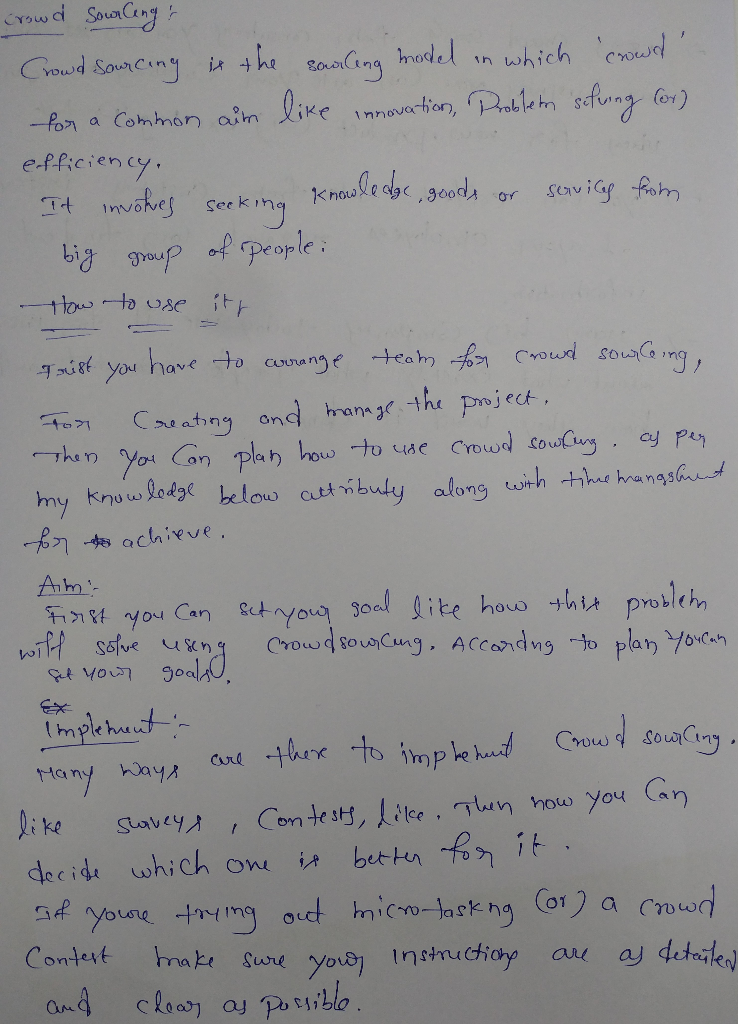 Crowd Sourcing :-
Crowd sourcing is the sourcing model in which 'crowd'
for a common aim like innovation, Problem solving (or)
efficiency.
It involves seeking knowledge, goods or services from
big group of people:
How to use it :-
First you have to arrange team for crowd sourcing,
For Creating and manage the project.
Then you Can plan how to use crowd sourcing. as per
my knowledge below attributes along with time
for achieve.
Aim:-
First you Can set your goal like how this problem
will solve using Crowdsourcing. According to plan you can
set your goals.
Implement :-
Many ways are there to implement Crowd sourcing.
like surveys, Contests, like. Then now you Can
decide which one is better for it.
If youre trying out micro-tasking (or) a crowd
Contest make sure your instructions are as detailed
and clear as possible.